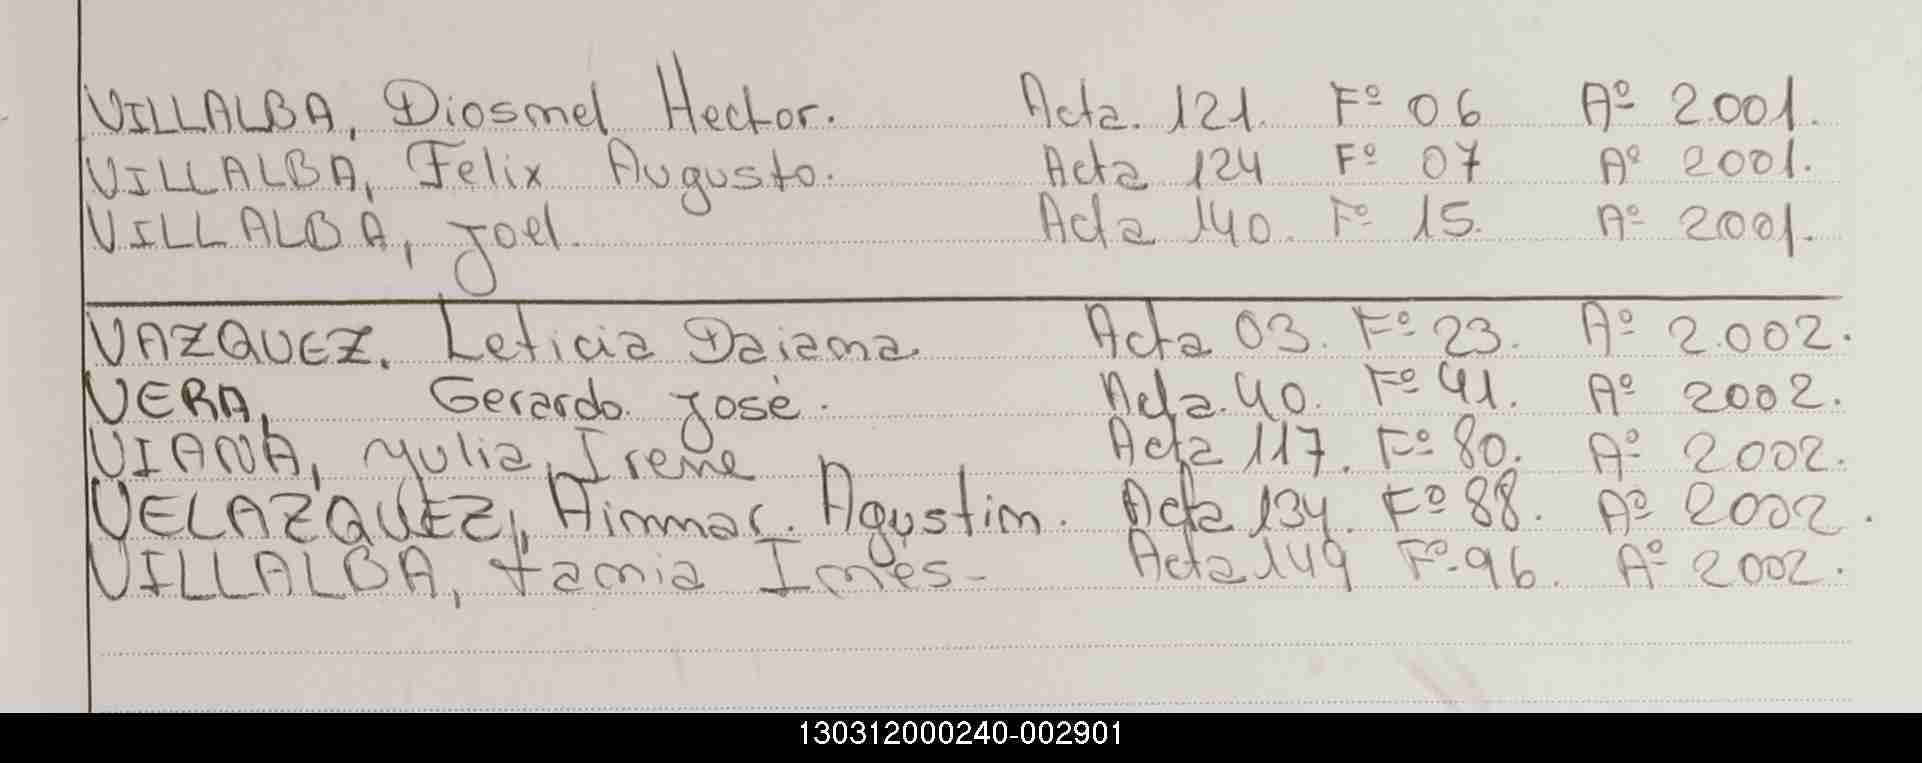 VILLALBA, Diosmel Hector. Acta. 121. Fº 06 Aº 2.001.
VILLALBA, Felix Augusto. Acta 124 Fº 07 Aº 2001.
VILLALBA, Joel. Acta 140. Fº 15. Aº 2001.
VAZQUEZ. Leticia Daiana Acta 03. Fº 23. Aº 2.002.
VERA, Gerardo José. Acta. 40. Fº 41. Aº 2002.
VIANA, Yulia Irene Acta 117. Fº 80. Aº 2002.
VELAZQUEZ, Ainmar. Agustin. Acta 134. Fº 88. Aº 2002.
VILLALBA, tania Inés- Acta 149 Fº 96. Aº 2002.
130312000240-002901